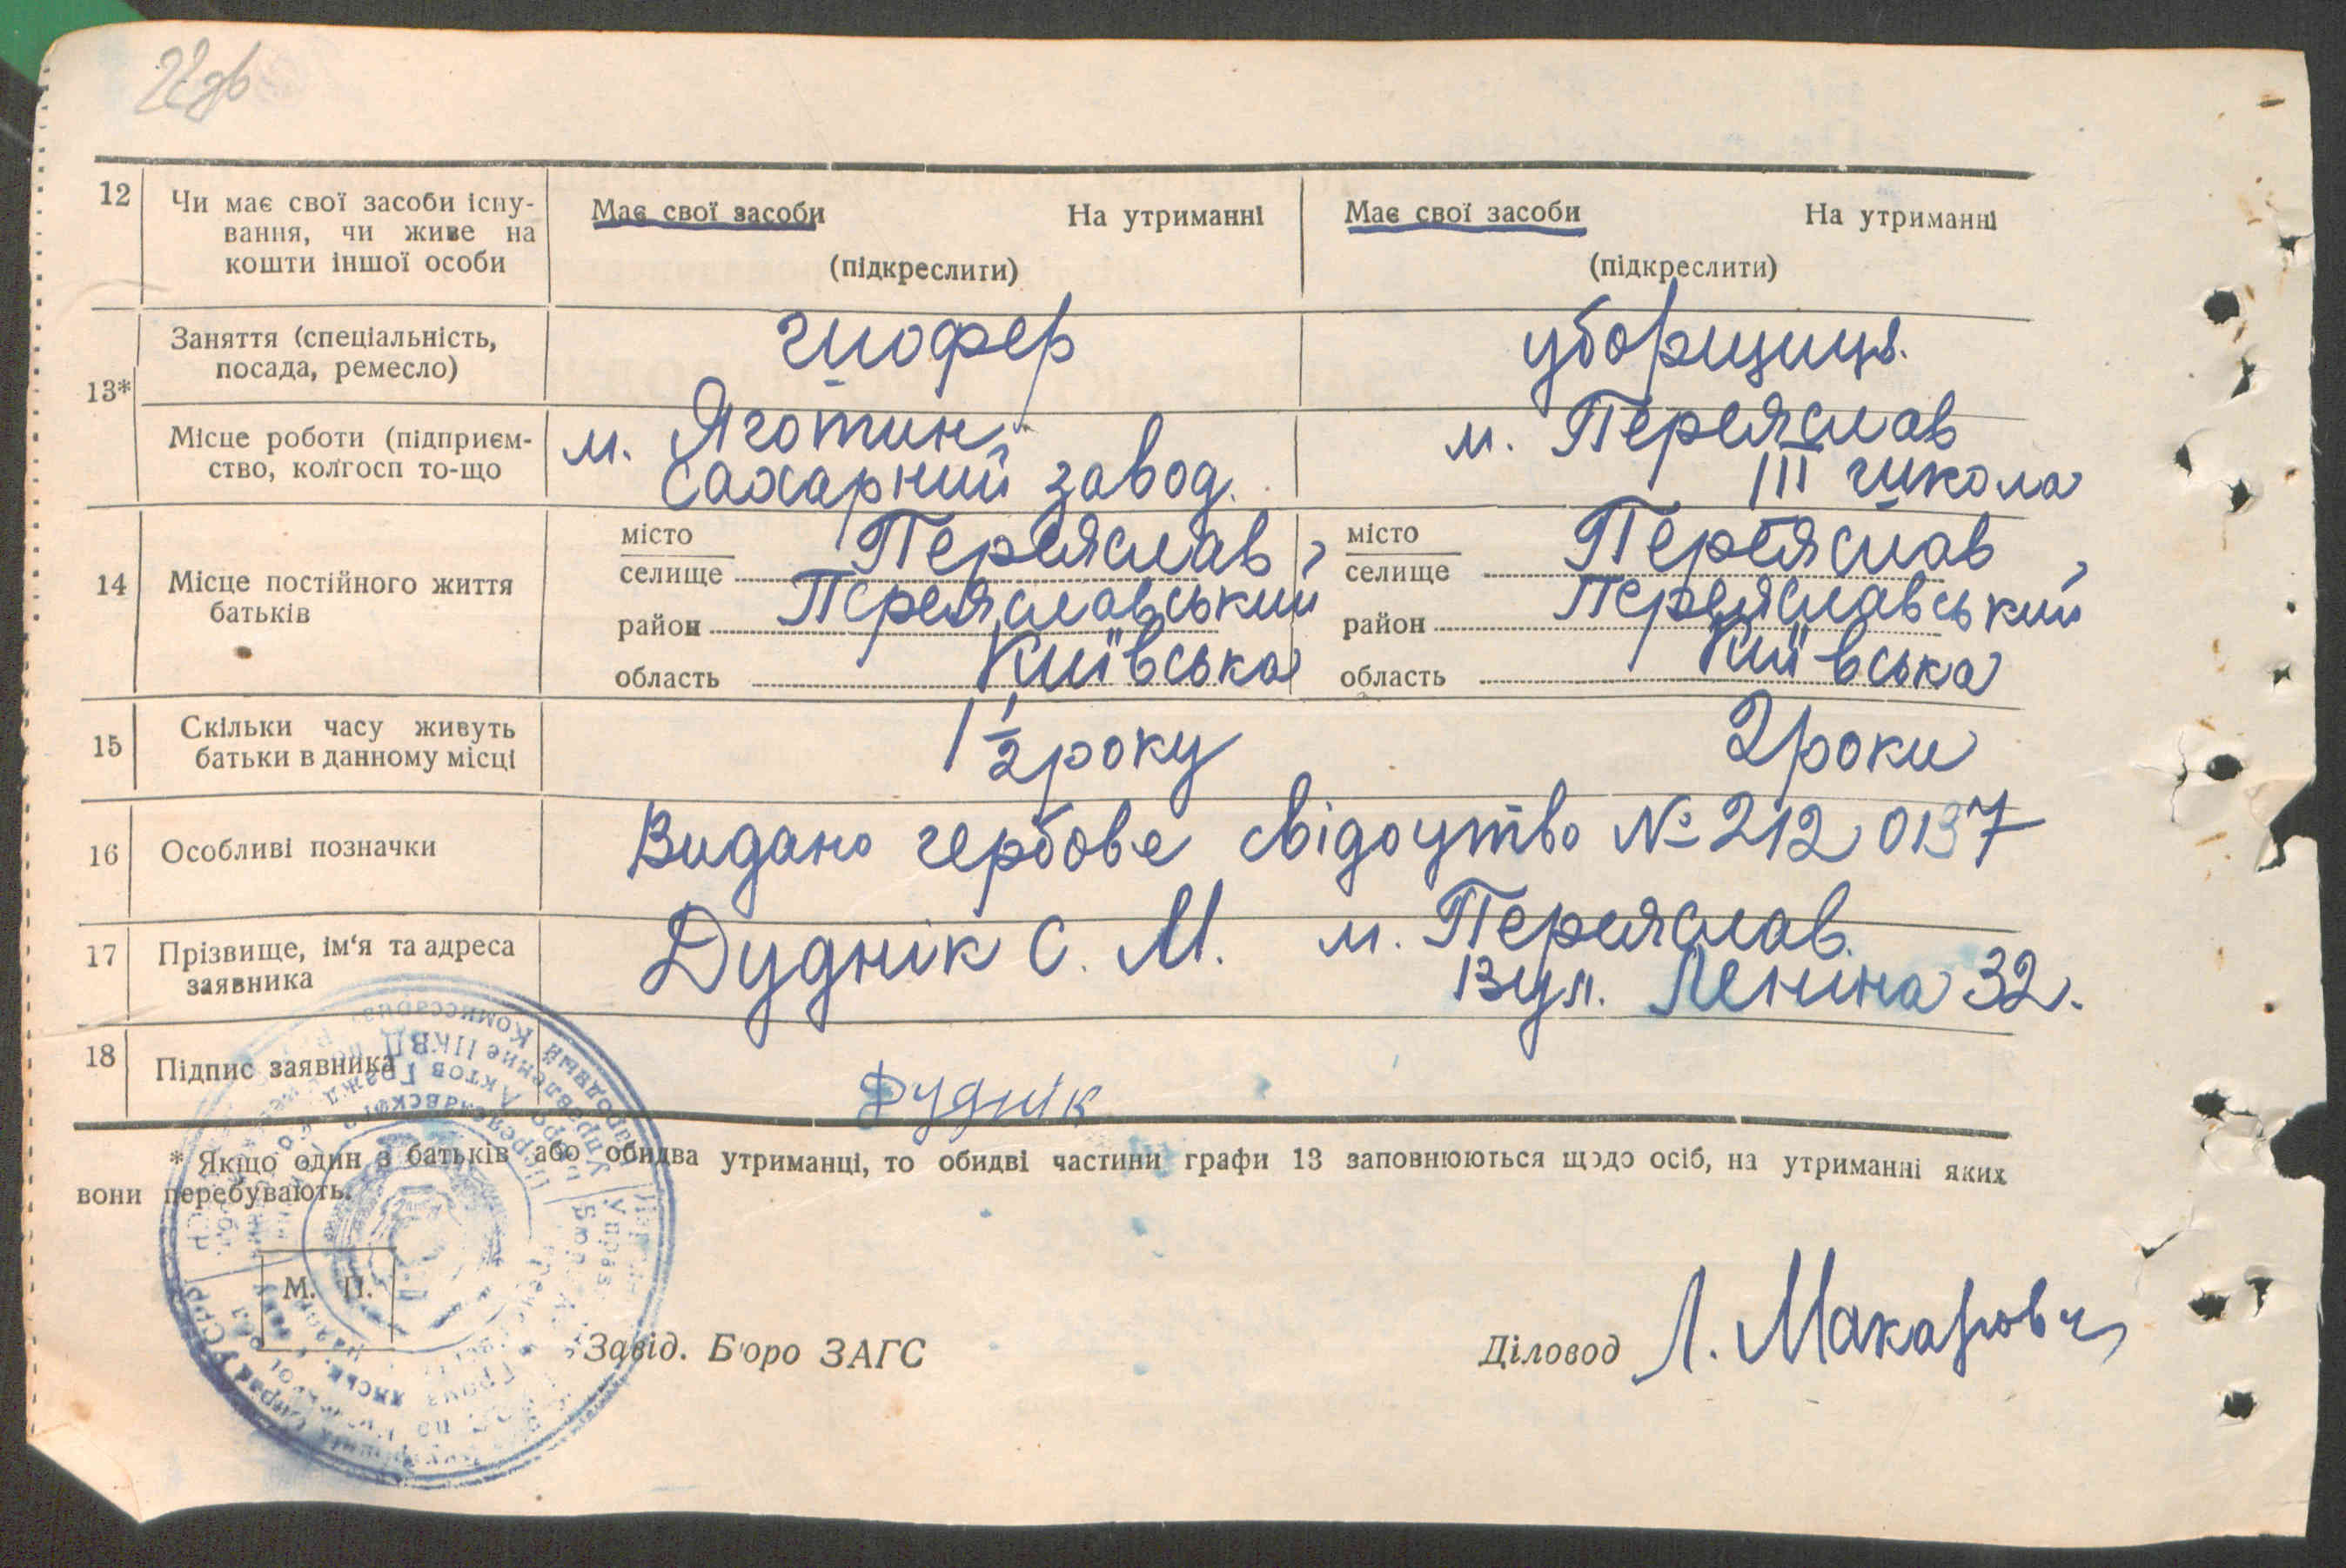 22 зв
12 Чи має свої засоби існу-
вання, чи живе на
кошти іншої особи
Має свої засоби На утриманні
(підкреслити)
Має свої засоби На утриманні
(підкреслити)
13*
Заняття (спеціальність,
посада, ремесло)
шофер
уборщиця.
Місце роботи (підприєм-
ство, колгосп то-що
м. Яготин,
Сахарний завод.
м. Переяслав
III школа
14 Місце постійного життя
батьків
місто
селище Переяслав,
район Переяславський
область Київська
місто
селище Переяслав,
район Переяславський
область Київська
15 Скільки часу живуть
батьки в данному місці
1 1/2 року
2 роки
16 Особливі позначки
Видано гербове свідоцтво № 212 0137
17 Прізвище, ім'я та адреса
заявника
Дуднік С. М. м. Переяслав.
Вул. Леніна 32.
18 Підпис заявника
Дуднік
* Якщо один з батьків або обидва утриманці, то обидві частини графи 13 заповнюються щодо осіб, на утриманні яких
вони перебувають.
М. П.
Завід. Бюро ЗАГС
Діловод Л. Макарович